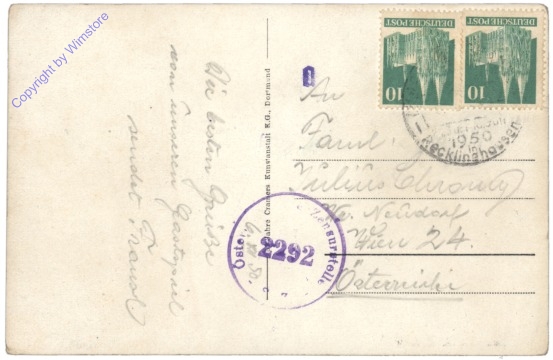 Copyright by Wimstore
Die besten Grüße
von unserem Gastspiel
sendet
Jahre Cramers Kunstanstalt K.G., Dortmund
DEUTSCHE POST
10
DEUTSCHE POST
10
1950
Recklinghausen
An
Faml.
Julius
Neudorf
Wien 24.
Österreich
Öster
Zensurstelle
2292